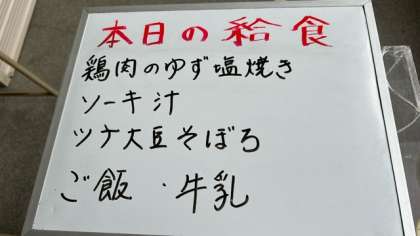 本日の給食
鶏肉のゆず塩焼き
ソーキ汁
ツナ大豆そぼろ
ご飯・牛乳